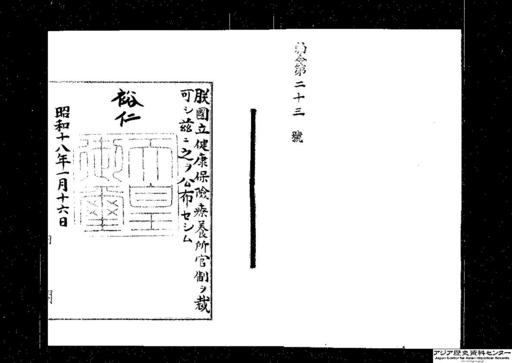 勅令第二十三號
朕國立健康保險療養所官制ヲ裁
可シ茲ニ之ヲ公布セシム
裕仁
天皇御璽
昭和十八年一月十六日
アジア歴史資料センター
Japan Center for Asian Historical Records